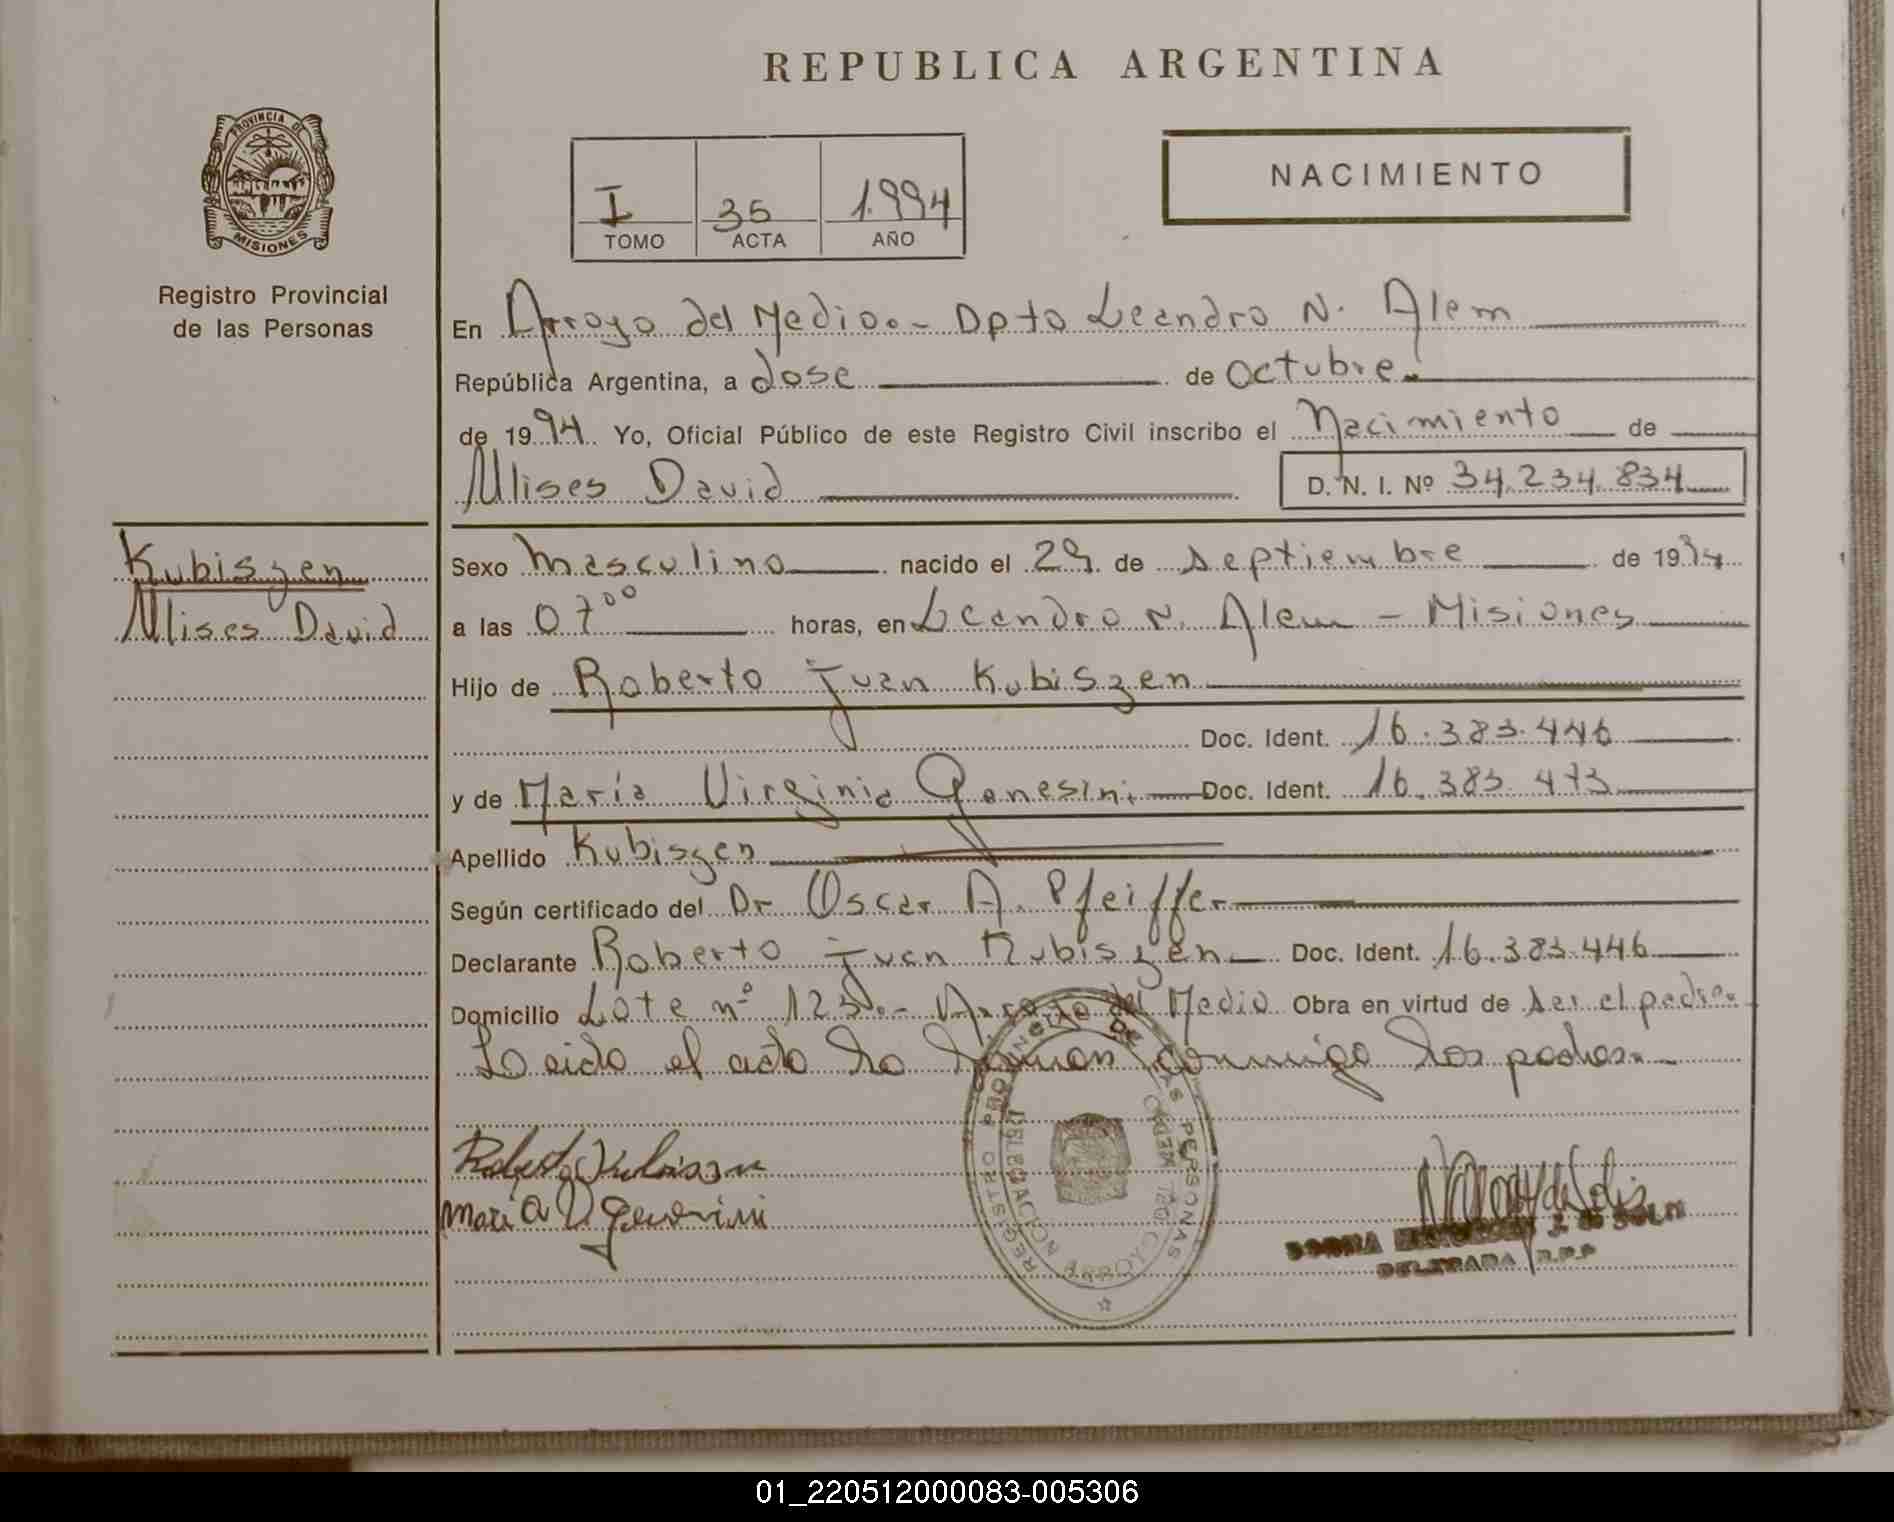 REPUBLICA ARGENTINA
PROVINCIA DE
MISIONES
Registro Provincial
de las Personas
I 35 1.994
TOMO ACTA AÑO
NACIMIENTO
En Arroyo del Medio.- Dpto Leandro N. Alem
República Argentina, a dose de Octubre.
de 1994 Yo, Oficial Público de este Registro Civil inscribo el Nacimiento de
Ulises David D. N. I. Nº 34.234.834
Kubiszen
Ulises David
Sexo Masculino nacido el 29 de Septiembre de 1994
a las 07⁰⁰ horas, en Leandro N. Alem - Misiones
Hijo de Roberto Juan Kubiszen
Doc. Ident. 16.383.446
y de María Virginia Genesini Doc. Ident. 16.383.473
Apellido Kubiszen
Según certificado del Dr Oscar A. Pfeiffer
Declarante Roberto Juan Kubiszen Doc. Ident. 16.383.446
Domicilio Lote nº 123.- Arroyo del Medio Obra en virtud de ser el padre.
Leido el acta la firman conmigo los padres.-
REGISTRO PROVINCIAL DE LAS PERSONAS
DELEGACION ARROYO DEL MEDIO
Roberto Kubiszen
Maria V Genesini
DELEGADA R.P.P
01_220512000083-005306